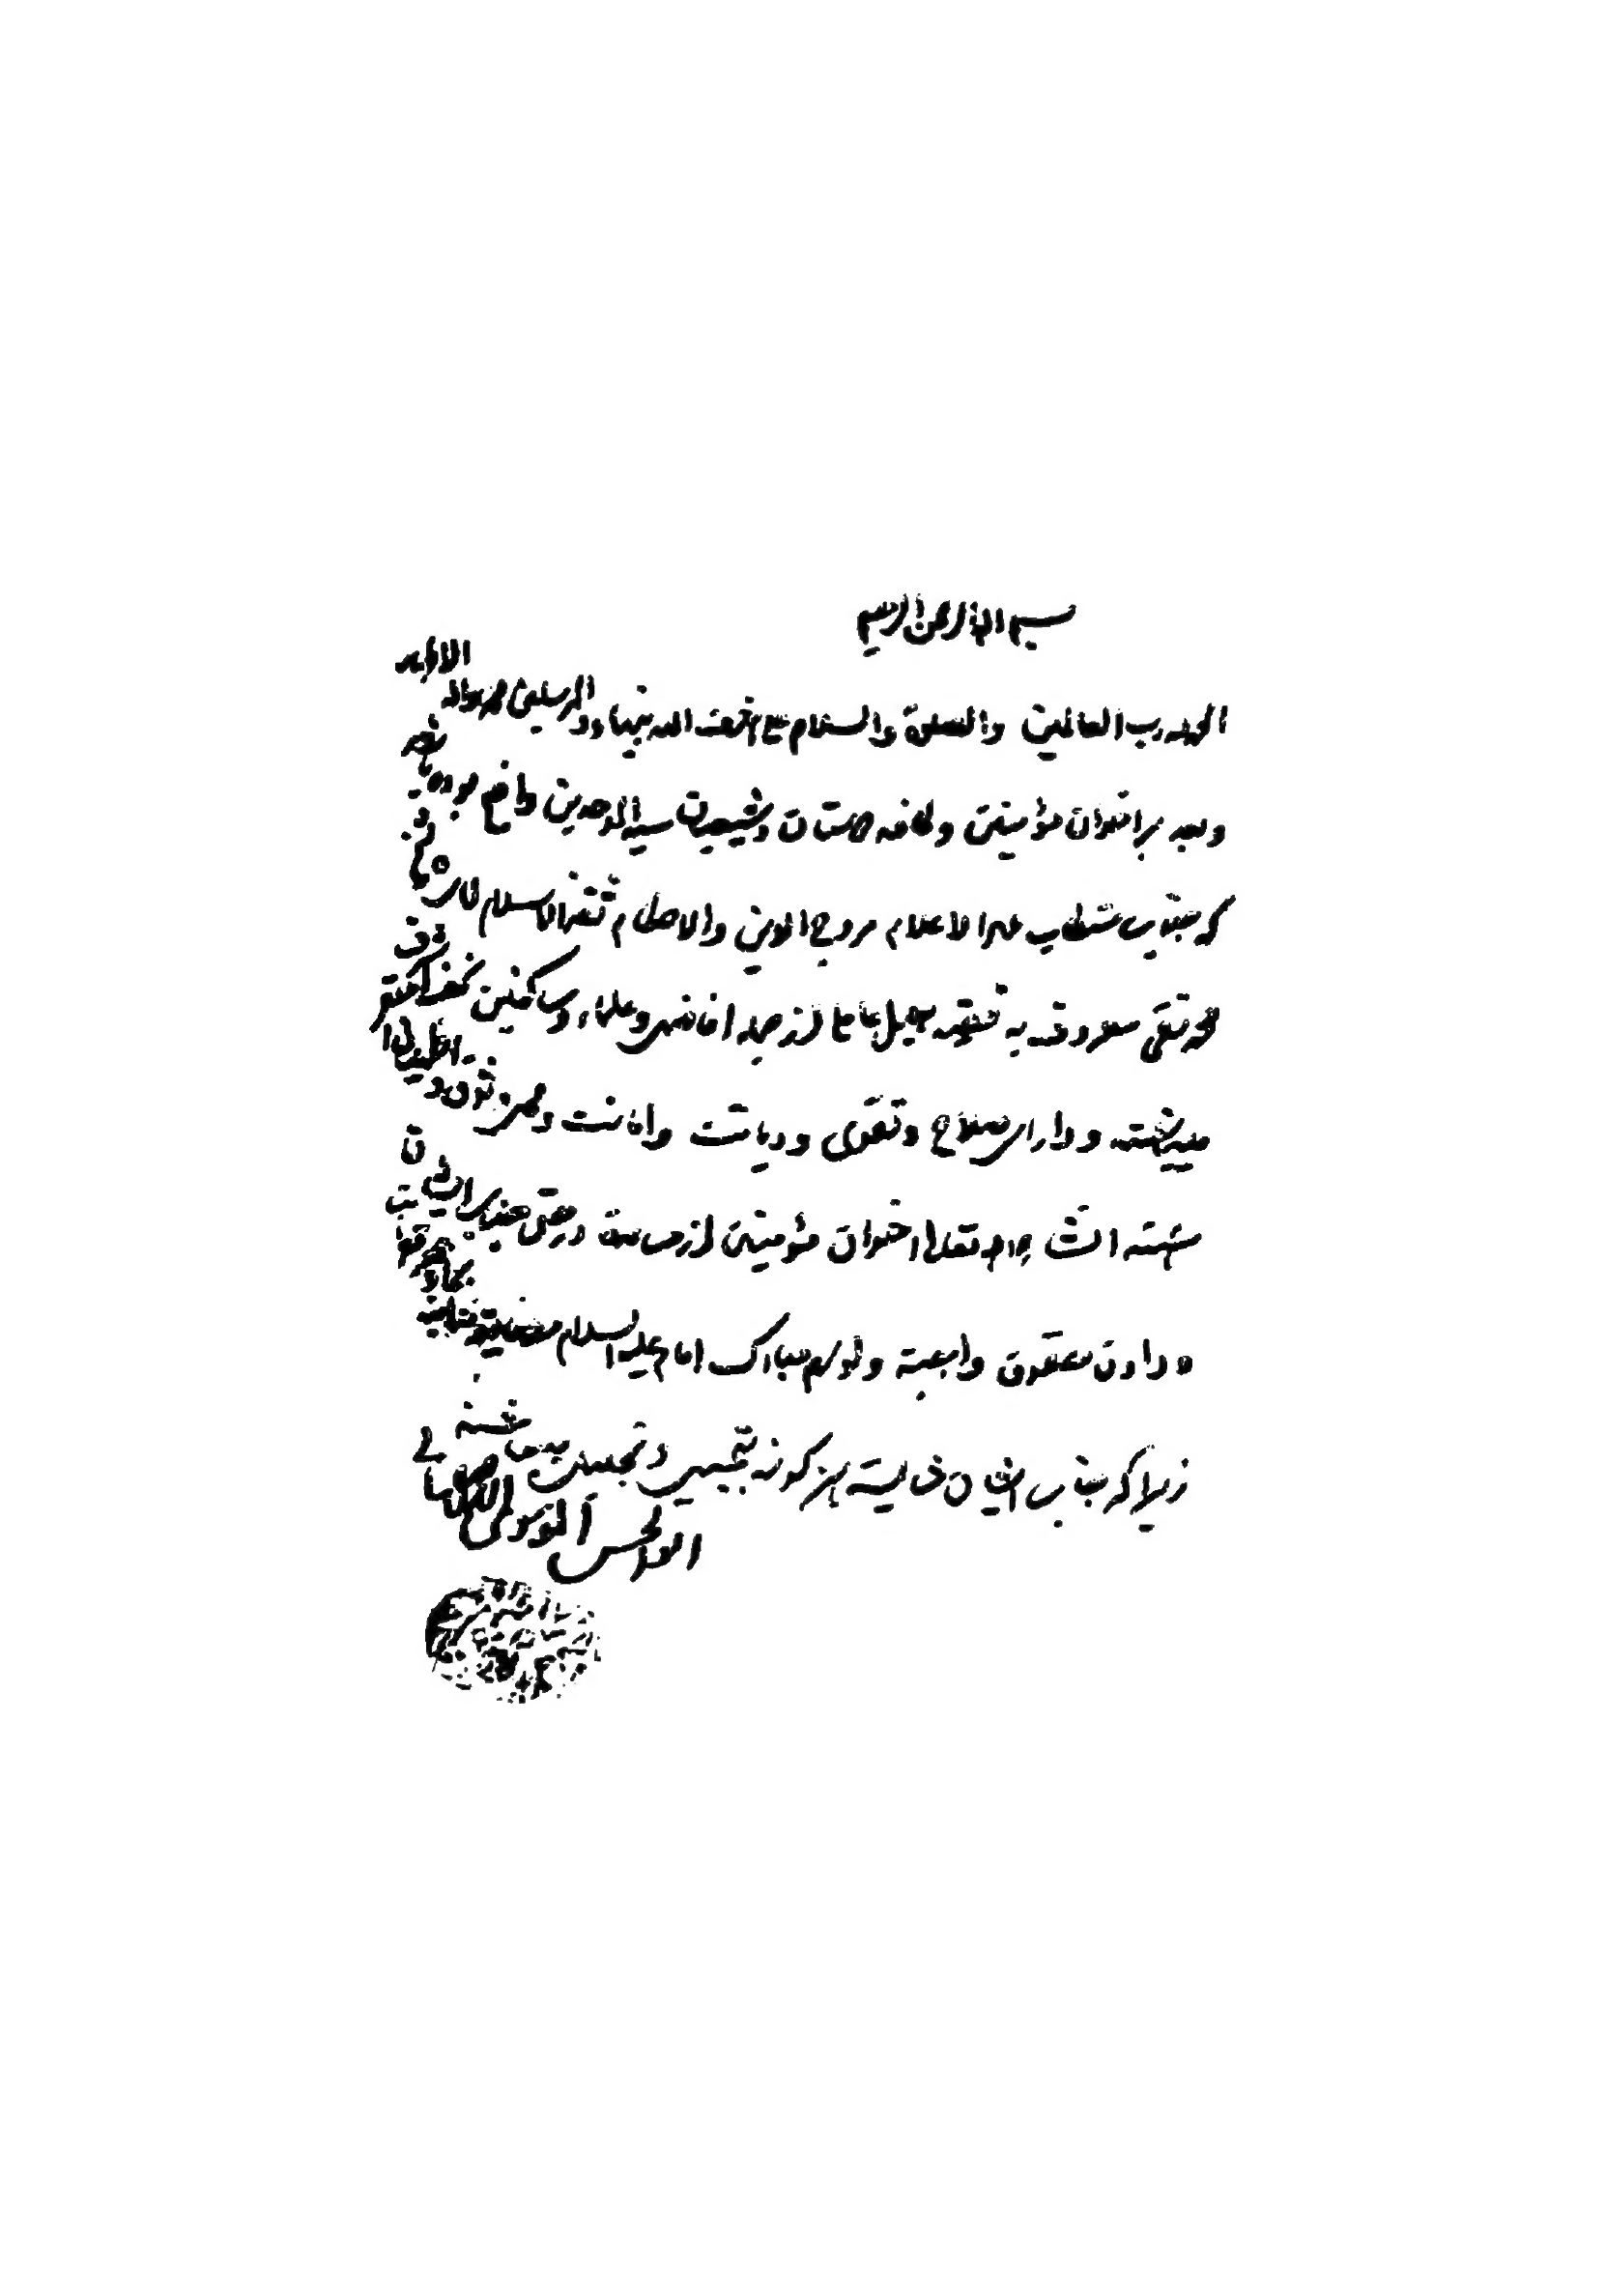 بسم الله الرحمن الرحیم
الحمد لله رب العالمین والصلوة والسلام علی اشرف الانبیاء والمرسلین محمد وآله الاطهار
وبعد بر اخوان مؤمنین وکافه دوستان وشیعیان سید الموحدین واضح بوده باشد
که جناب مستطاب فخر الاعلام مروج الدین والاحکام ثقة الاسلام آقای شیخ
محمد تقی معروف به فقیه جبل عاملی از جمله افاضل وعلماء وساکنین نجف اشرف
میباشند ودارای صلاح وتقوی ودیانت وامانت ومحل وثوق واطمینان
هستند انشاء الله تعالی اخوان مؤمنین از مساعدت در حق جناب ایشان
دادن حقوق واجبة وسهم مبارک امام علیه السلام مضایقه ننمایند
زیرا که جناب ایشان شایسته هر گونه تبجیل وتجلیل میباشند
ابو الحسن الموسوی الاصفهانی